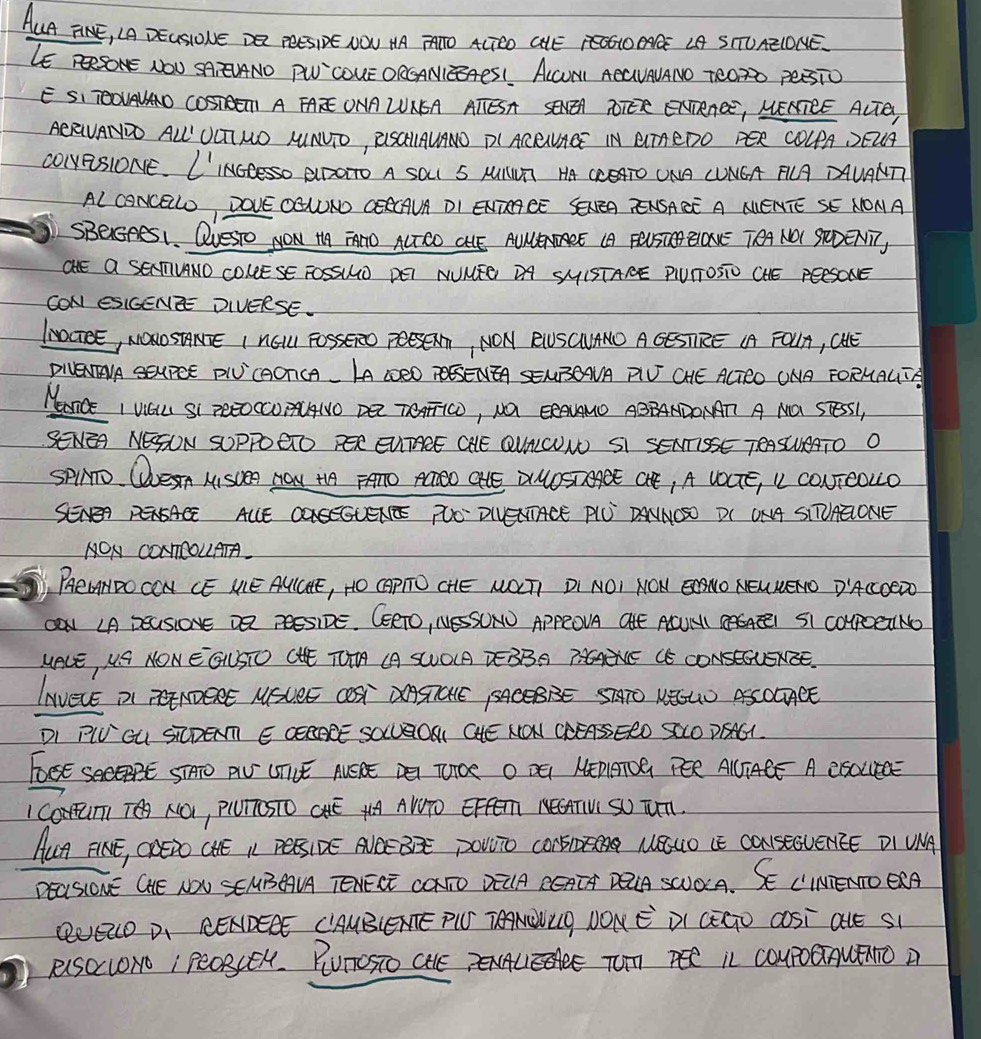 ALLA FINE, LA DECISIONE DEL PRESIDE NON HA FATTO ALTRO CHE PEGGIORARE LA SITUAZIONE.
LE PERSONE NON SAPEVANO PIU' COME ORGANIZZARSI. ALCUNI ARRIVAVANO TROPPO PRESTO
E SI TROVAVANO COSTRETTI A FARE UNA LUNGA ATTESA SENZA POTER ENTRARE, MENTRE ALTRI,
ARRIVANDO ALL'ULTIMO MINUTO, RISCHIAVANO DI ARRIVARE IN RITARDO PER COLPA DELLA
CONFUSIONE. L'INGRESSO RIDOTTO A SOLI 5 MINUTI HA CREATO UNA LUNGA FILA DAVANTI
AL CANCELLO, DOVE OGNUNO CERCAVA DI ENTRARE SENZA PENSARE A NIENTE SE NON A
SBRIGARSI. QUESTO NON HA FATTO ALTRO CHE AUMENTARE LA FRUSTRAZIONE TRA NOI STUDENTI,
CHE CI SENTIVANO COME SE FOSSIMO DEI NUMERI DA SMISTARE PIUTTOSTO CHE PERSONE
CON ESIGENZE DIVERSE.
INOLTRE, NONOSTANTE I VIGILI FOSSERO PRESENTI, NON RIUSCIVANO A GESTIRE LA FOLLA, CHE
DIVENTAVA SEMPRE PIU' CAOTICA. LA LORO PRESENZA SEMBRAVA PIU' CHE ALTRO UNA FORMALITÀ
MENTRE I VIGILI SI PREOCCUPAVANO DEL TRAFFICO, NOI ERAVAMO ABBANDONATI A NOI STESSI,
SENZA NESSUN SUPPORTO PER EVITARE CHE QUALCUNO SI SENTISSE TRASCURATO O
SPINTO. QUESTA MISURA NON HA FATTO ALTRO CHE DIMOSTRARE CHE, A VOLTE, IL CONTROLLO
SENZA PENSARE ALLE CONSEGUENZE PUO' DIVENTARE PIU' DANNOSO DI UNA SITUAZIONE
NON CONTROLLATA.
PARLANDO CON LE MIE AMICHE, HO CAPITO CHE MOLTI DI NOI NON ERANO NEMMENO D'ACCORDO
CON LA DECISIONE DEL PRESIDE. CERTO, NESSUNO APPROVA CHE ALCUNI RAGAZZI SI COMPORTINO
MALE, MA NON E' GIUSTO CHE TUTTA LA SCUOLA DEBBA PAGARNE LE CONSEGUENZE.
INVECE DI PRENDERE MISURE COSÌ DRASTICHE, SAREBBE STATO MEGLIO ASCOLTARE
DI PIU' GLI STUDENTI E CERCARE SOLUZIONI CHE NON CREASSERO SOLO DISAGI.
FORSE SAREBBE STATO PIU' UTILE AVERE DEI TUTOR O DEI MEDIATORI PER AIUTARE A RISOLVERE
I CONFLITTI TRA NOI, PIUTTOSTO CHE HA AVUTO EFFETTI NEGATIVI SU TUTTI.
ALLA FINE, CREDO CHE IL PRESIDE AVREBBE DOVUTO CONSIDERARE MEGLIO LE CONSEGUENZE DI UNA
DECISIONE CHE NON SEMBRAVA TENERE CONTO DELLA REALTÀ DELLA SCUOLA. SE L'INTENTO ERA
QUELLO DI RENDERE L'AMBIENTE PIU' TRANQUILLO, NON È DI CERTO COSÌ CHE SI
RISOLVONO I PROBLEMI. PIUTTOSTO CHE PENALIZZARE TUTTI PER IL COMPORTAMENTO DI